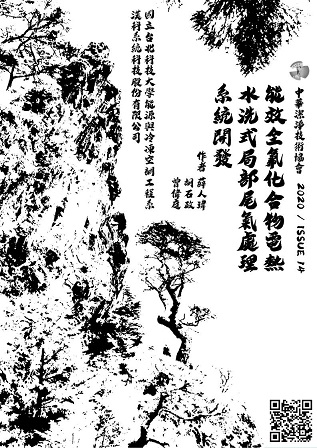 中華潔淨技術協會 2020 / ISSUE 14
能效全氟化合物電熱
水洗式局部尾氣處理
系統開發
作者 薛人瑋
胡石政
曾偉庭
國立台北科技大學能源與冷凍空調工程系
漢科系統科技股份有限公司